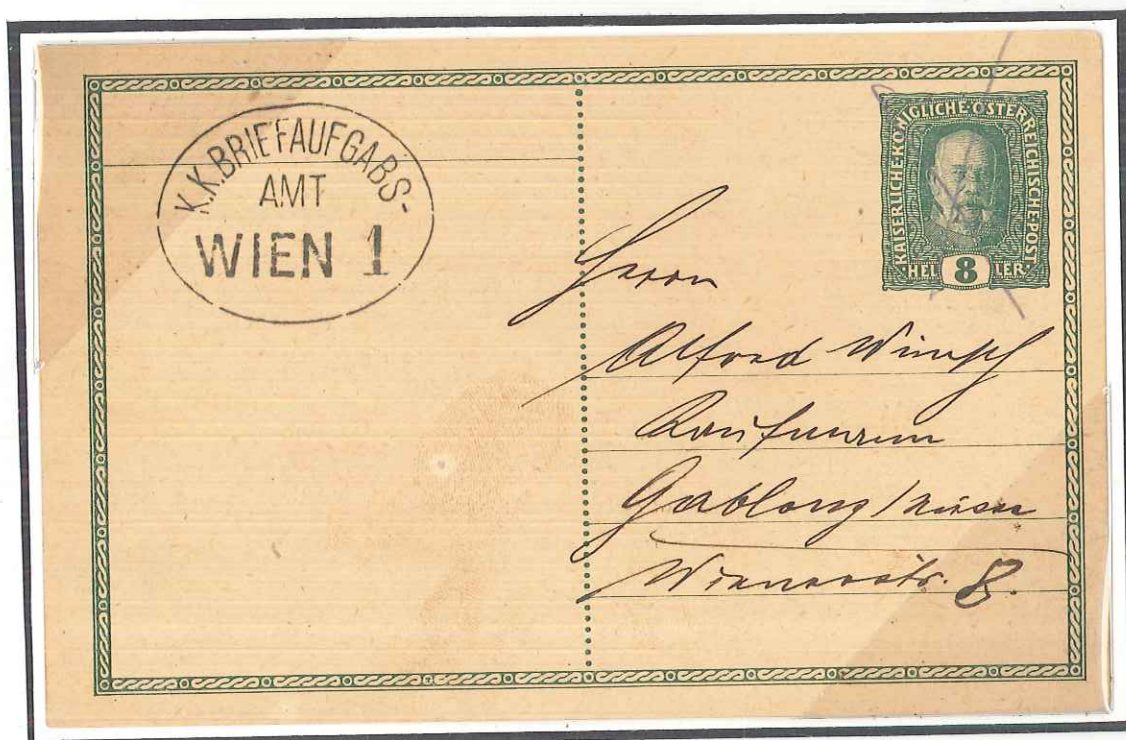 K.K.BRIEFAUFGABS-
AMT
WIEN 1
KAISERLICHE·KÖNIGLICHE·ÖSTERREICHISCHE·POST
HEL 8 LER
Herrn
Alfred
Kaufmann
Gablonz /
Wienerstr. 8.